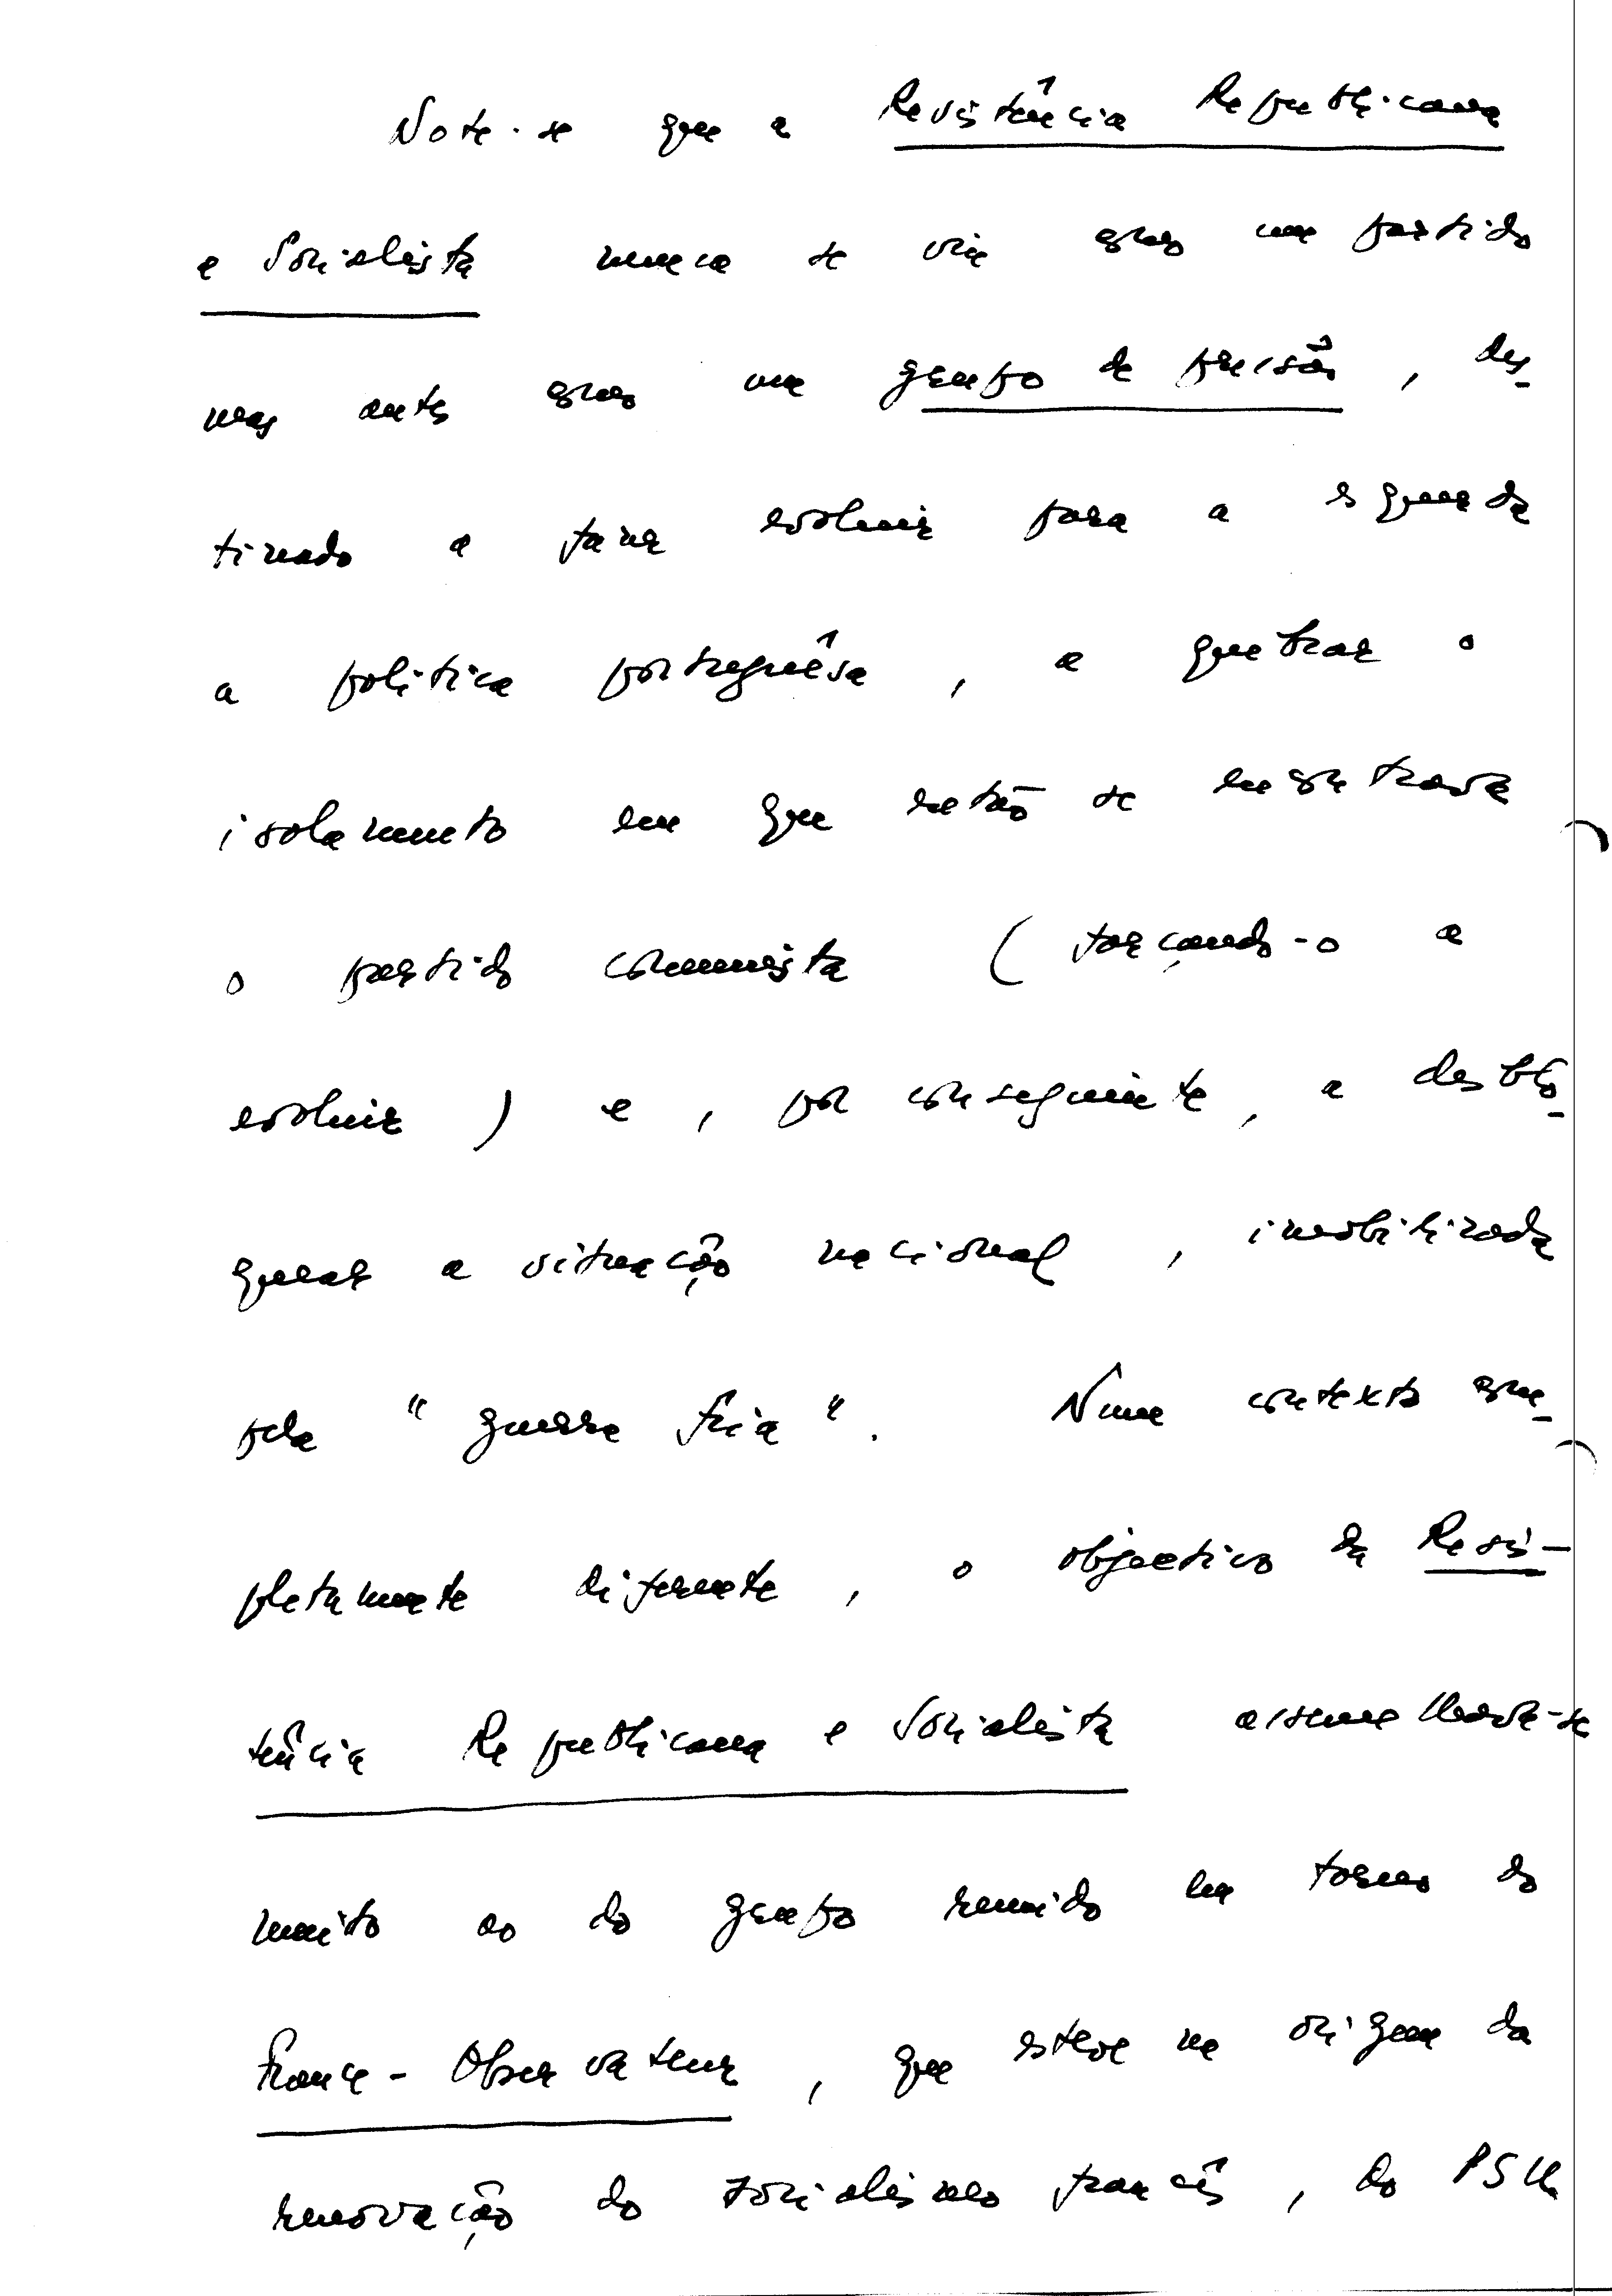 Note-se que a Resistência Republicana
e Socialista nunca se viu como um partido
mas antes como um grupo de pressão, des-
tinado a fazer evoluir para a esquerda
a política portuguêsa, a quebrar o
isolamento em que então se encontrava
o partido comunista (forçando-o a
evoluir) e, por conseguinte, a desblo-
quear a situação nacional, imobilizada
pela "guerra fria". Num contexto com-
pletamente diferente, o objectivo da Resis-
tência Republicana e Socialista assemelhava-se
muito ao do grupo reunido em torno do
France-Observateur, que esteve na origem da
renovação do socialismo francês, do PSU